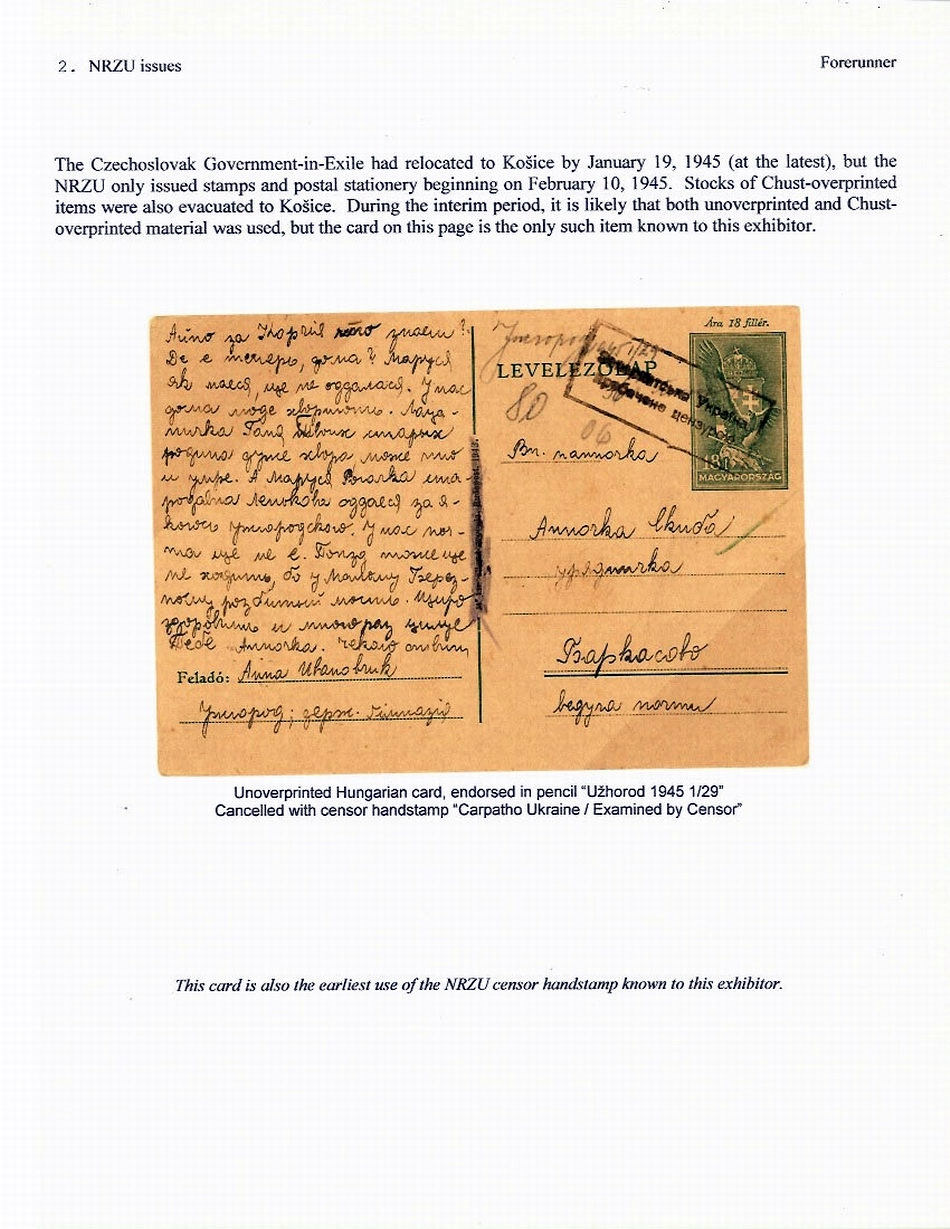 2. NRZU issues
Forerunner
The Czechoslovak Government-in-Exile had relocated to Košice by January 19, 1945 (at the latest), but the
NRZU only issued stamps and postal stationery beginning on February 10, 1945. Stocks of Chust-overprinted
items were also evacuated to Košice. During the interim period, it is likely that both unoverprinted and Chust-
overprinted material was used, but the card on this page is the only such item known to this exhibitor.
Ára 18 fillér.
LEVELEZŐLAP
80
06
Україна
цензурою
18
MAGYARORSZÁG
за знаеш?
Де е теперь, дома? Маруся
як маеся, ще не оддалася. У нас
дома
родина дуже хвора, може
и умре. А Маруся
оддалася за я-
когось Ужгородского. У нас
ще не е. Поизд може ще
не ходить, бо у Малому Берез-
ному розбитый мость.
и много раз
Тебе Анночка. Чекаю
Feladó: Анна
Ужгород, держ. гімназія
Вп. панночка
Анночка
урядничка
Баркасово
Unoverprinted Hungarian card, endorsed in pencil “Užhorod 1945 1/29”
Cancelled with censor handstamp “Carpatho Ukraine / Examined by Censor”
This card is also the earliest use of the NRZU censor handstamp known to this exhibitor.